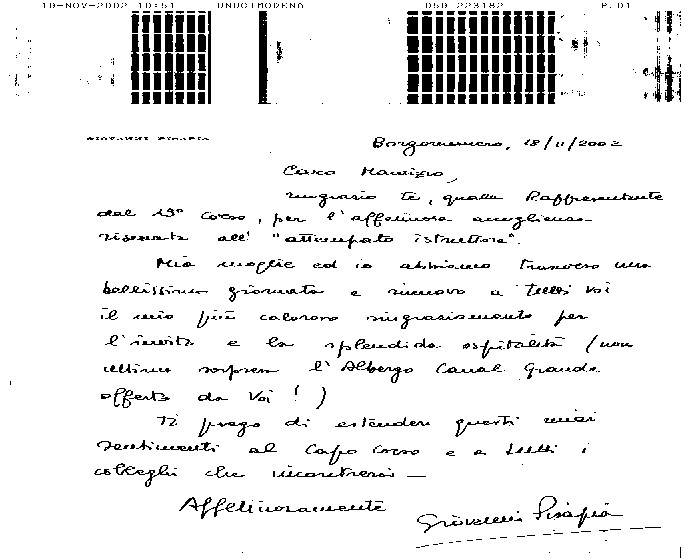 18-NOV-2002 10:51 UNUCIMODENA 059 223182 P.01
GIOVANNI PISAPIA
Borgomanero, 18/11/2002
Caro Maurizio,
ringrazio te, quale Rappresentante
del 19° Corso, per l'affettuosa accoglienza
riservata all' "attempato istruttore".
Mia moglie ed io abbiamo trascorso una
bellissima giornata e rinnovo a Tutti Voi
il mio più caloroso ringraziamento per
l'invito e la splendida ospitalità (non
ultima sorpresa l'Albergo Canal Grande
offerto da Voi!)
Ti prego di estendere questi miei
sentimenti al Capo Corso e a tutti i
colleghi che incontrerai —
Affettuosamente
Giovanni Pisapia